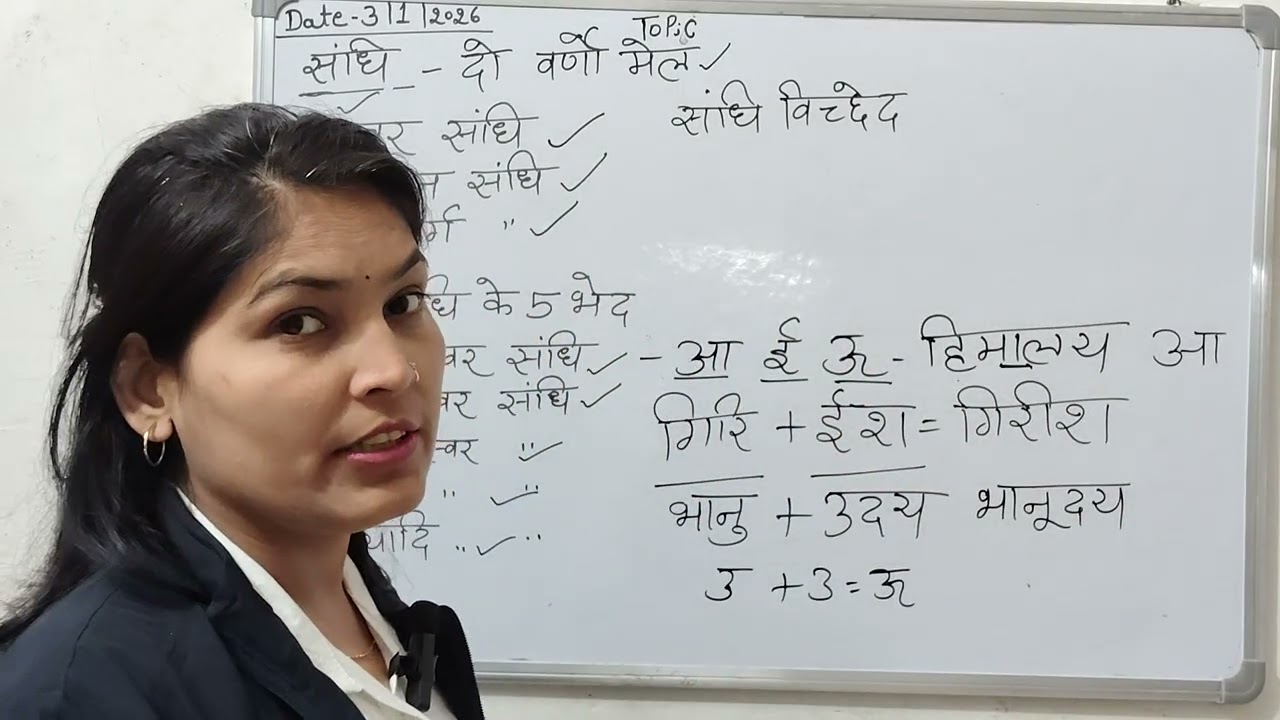 Date-3/1/2026
Topic
संधि - दो वर्णो मेल ✓
संधि विच्छेद
संधि ✓
संधि ✓
" ✓
के 5 भेद
संधि ✓ - आ ई ऊ - हिमालय आ
संधि ✓ गिरि + ईश = गिरीश
" ✓
" ✓ " भानु + उदय भानूदय
" ✓ "
उ + उ = ऊ